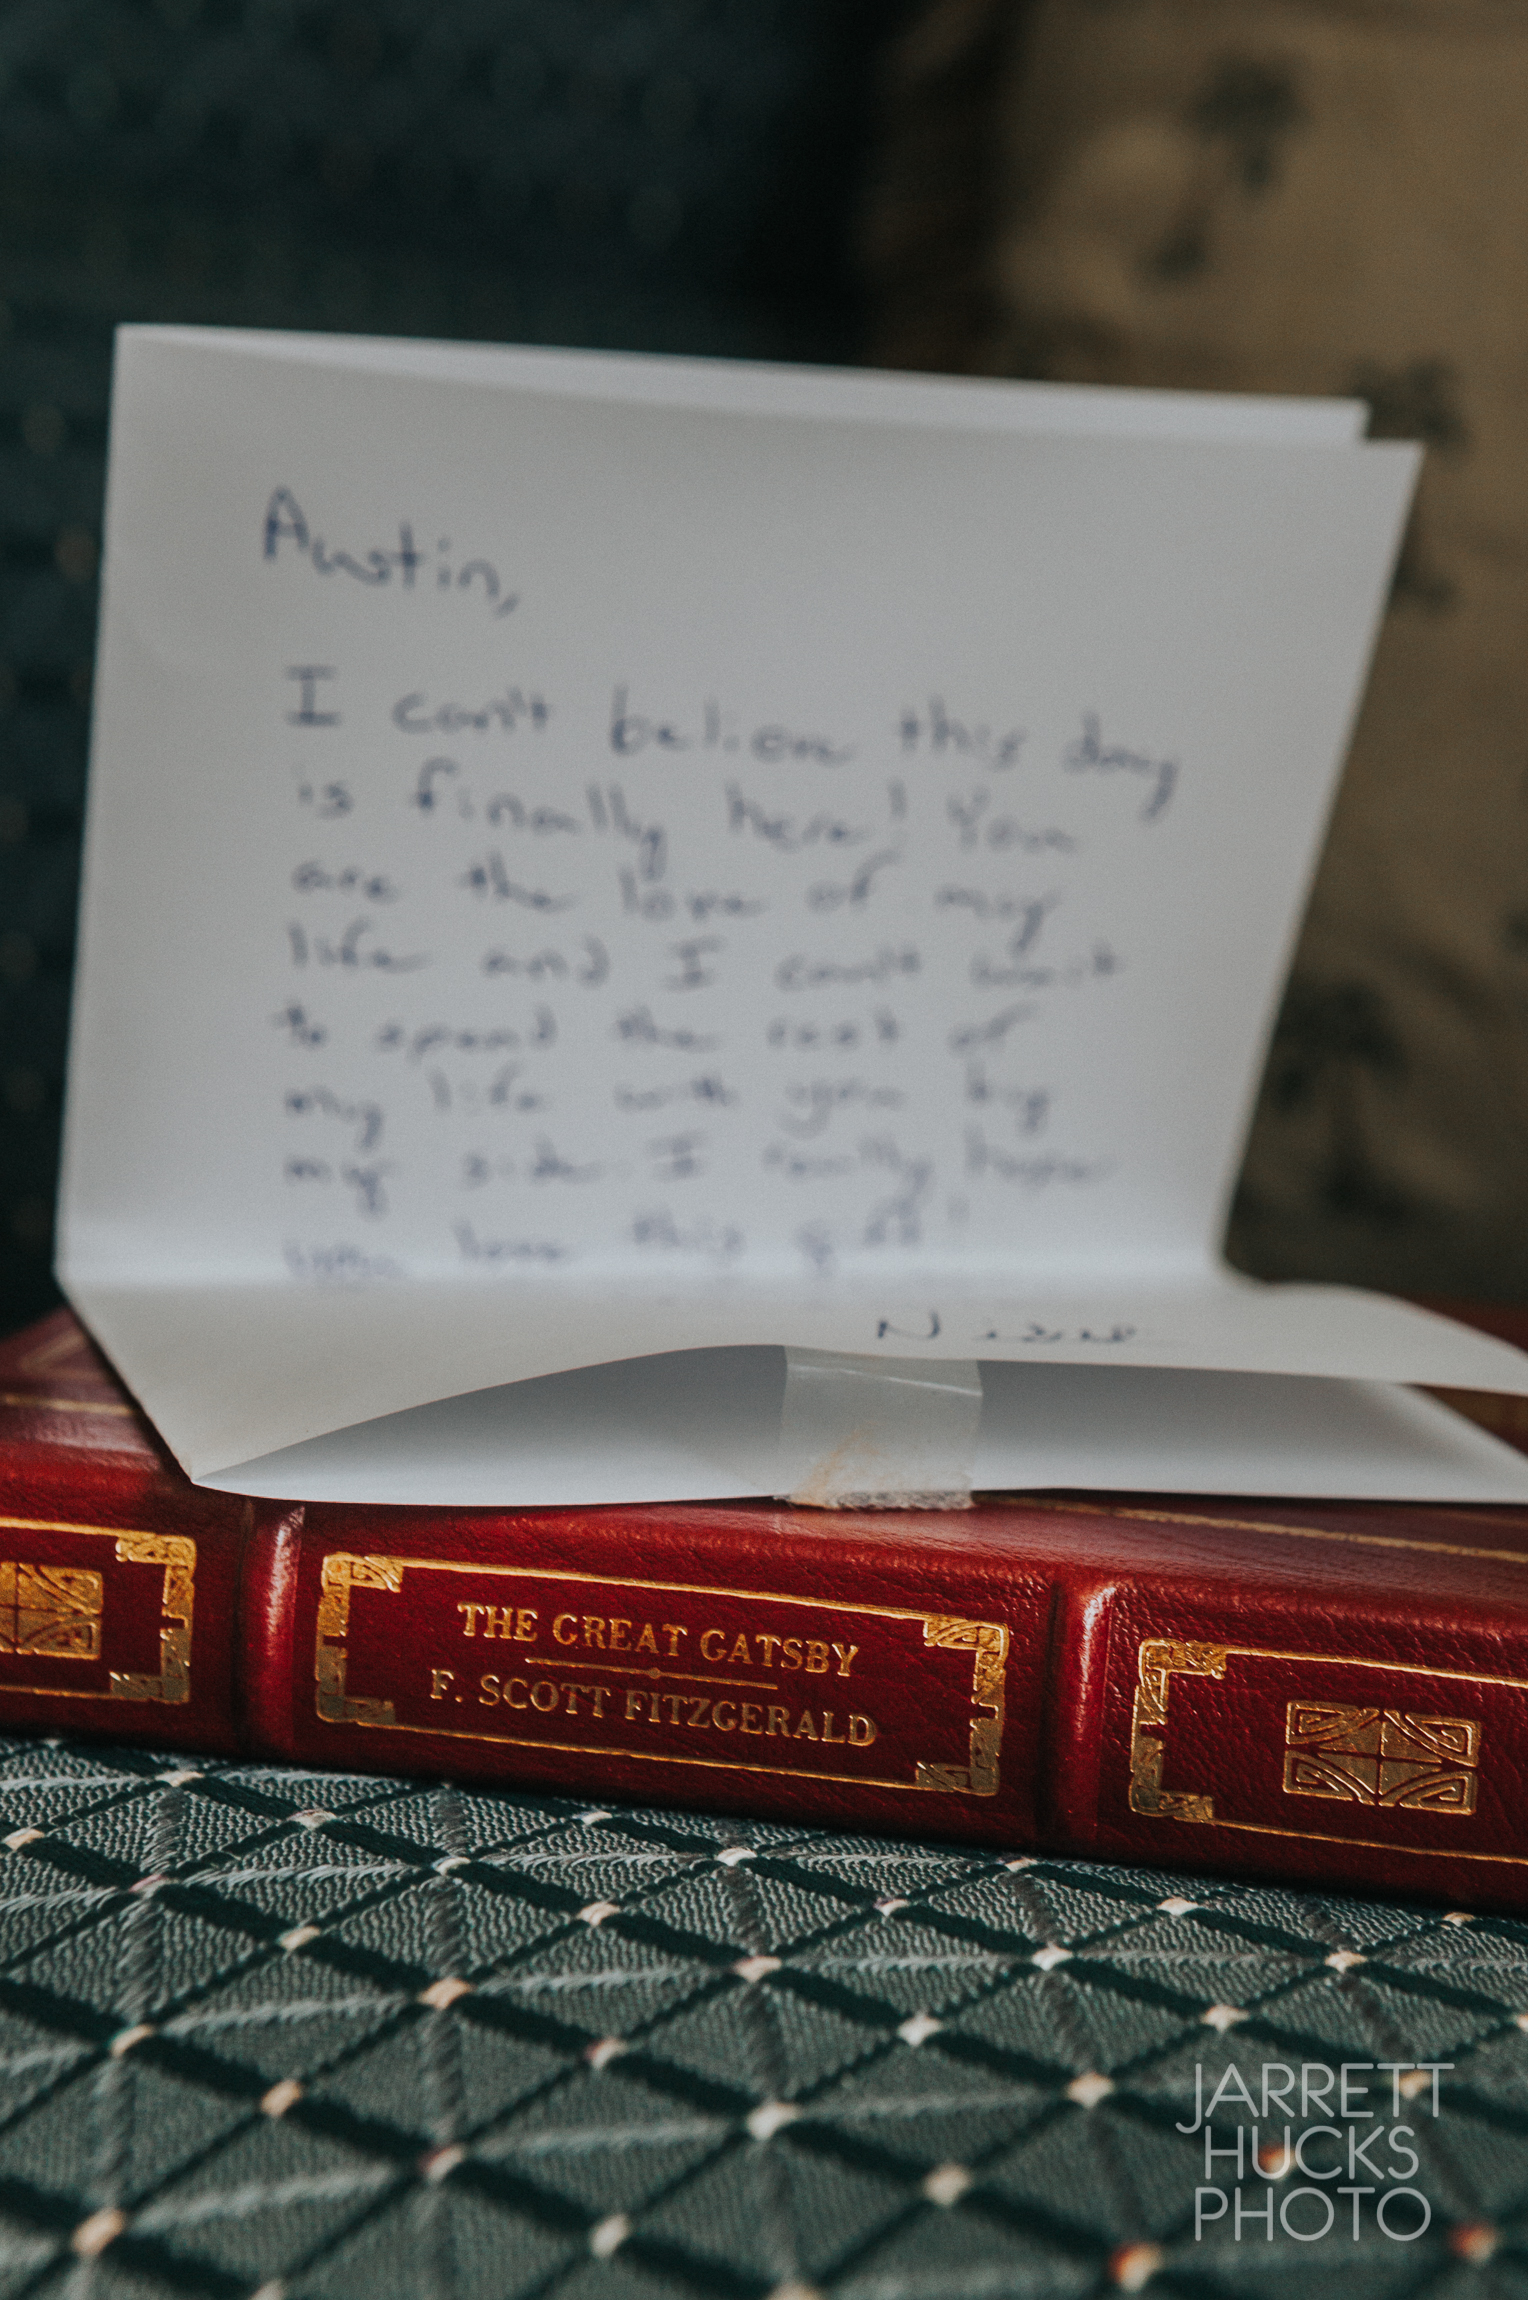 Austin,
I can't believe this day
is finally here! You
are the love of my
life and I can't wait
to spend the rest of
my life with you by
my side. I really hope
you love this gift!
THE GREAT GATSBY
F. SCOTT FITZGERALD
JARRETT
HUCKS
PHOTO